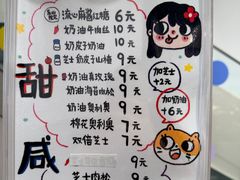 流心麻薯红糖 6元
奶油牛肉丝 10元
奶皮子奶油 10元
芝士奶皮子山楂 9元
奶油 9元
奶油海苔肉松 9元
奶油奥利奥 9元
棉花奥利奥 7元
双倍芝士 7元
9元
芝士肉松 9元
甜
咸
加芝士
+2元
加奶油
+6元